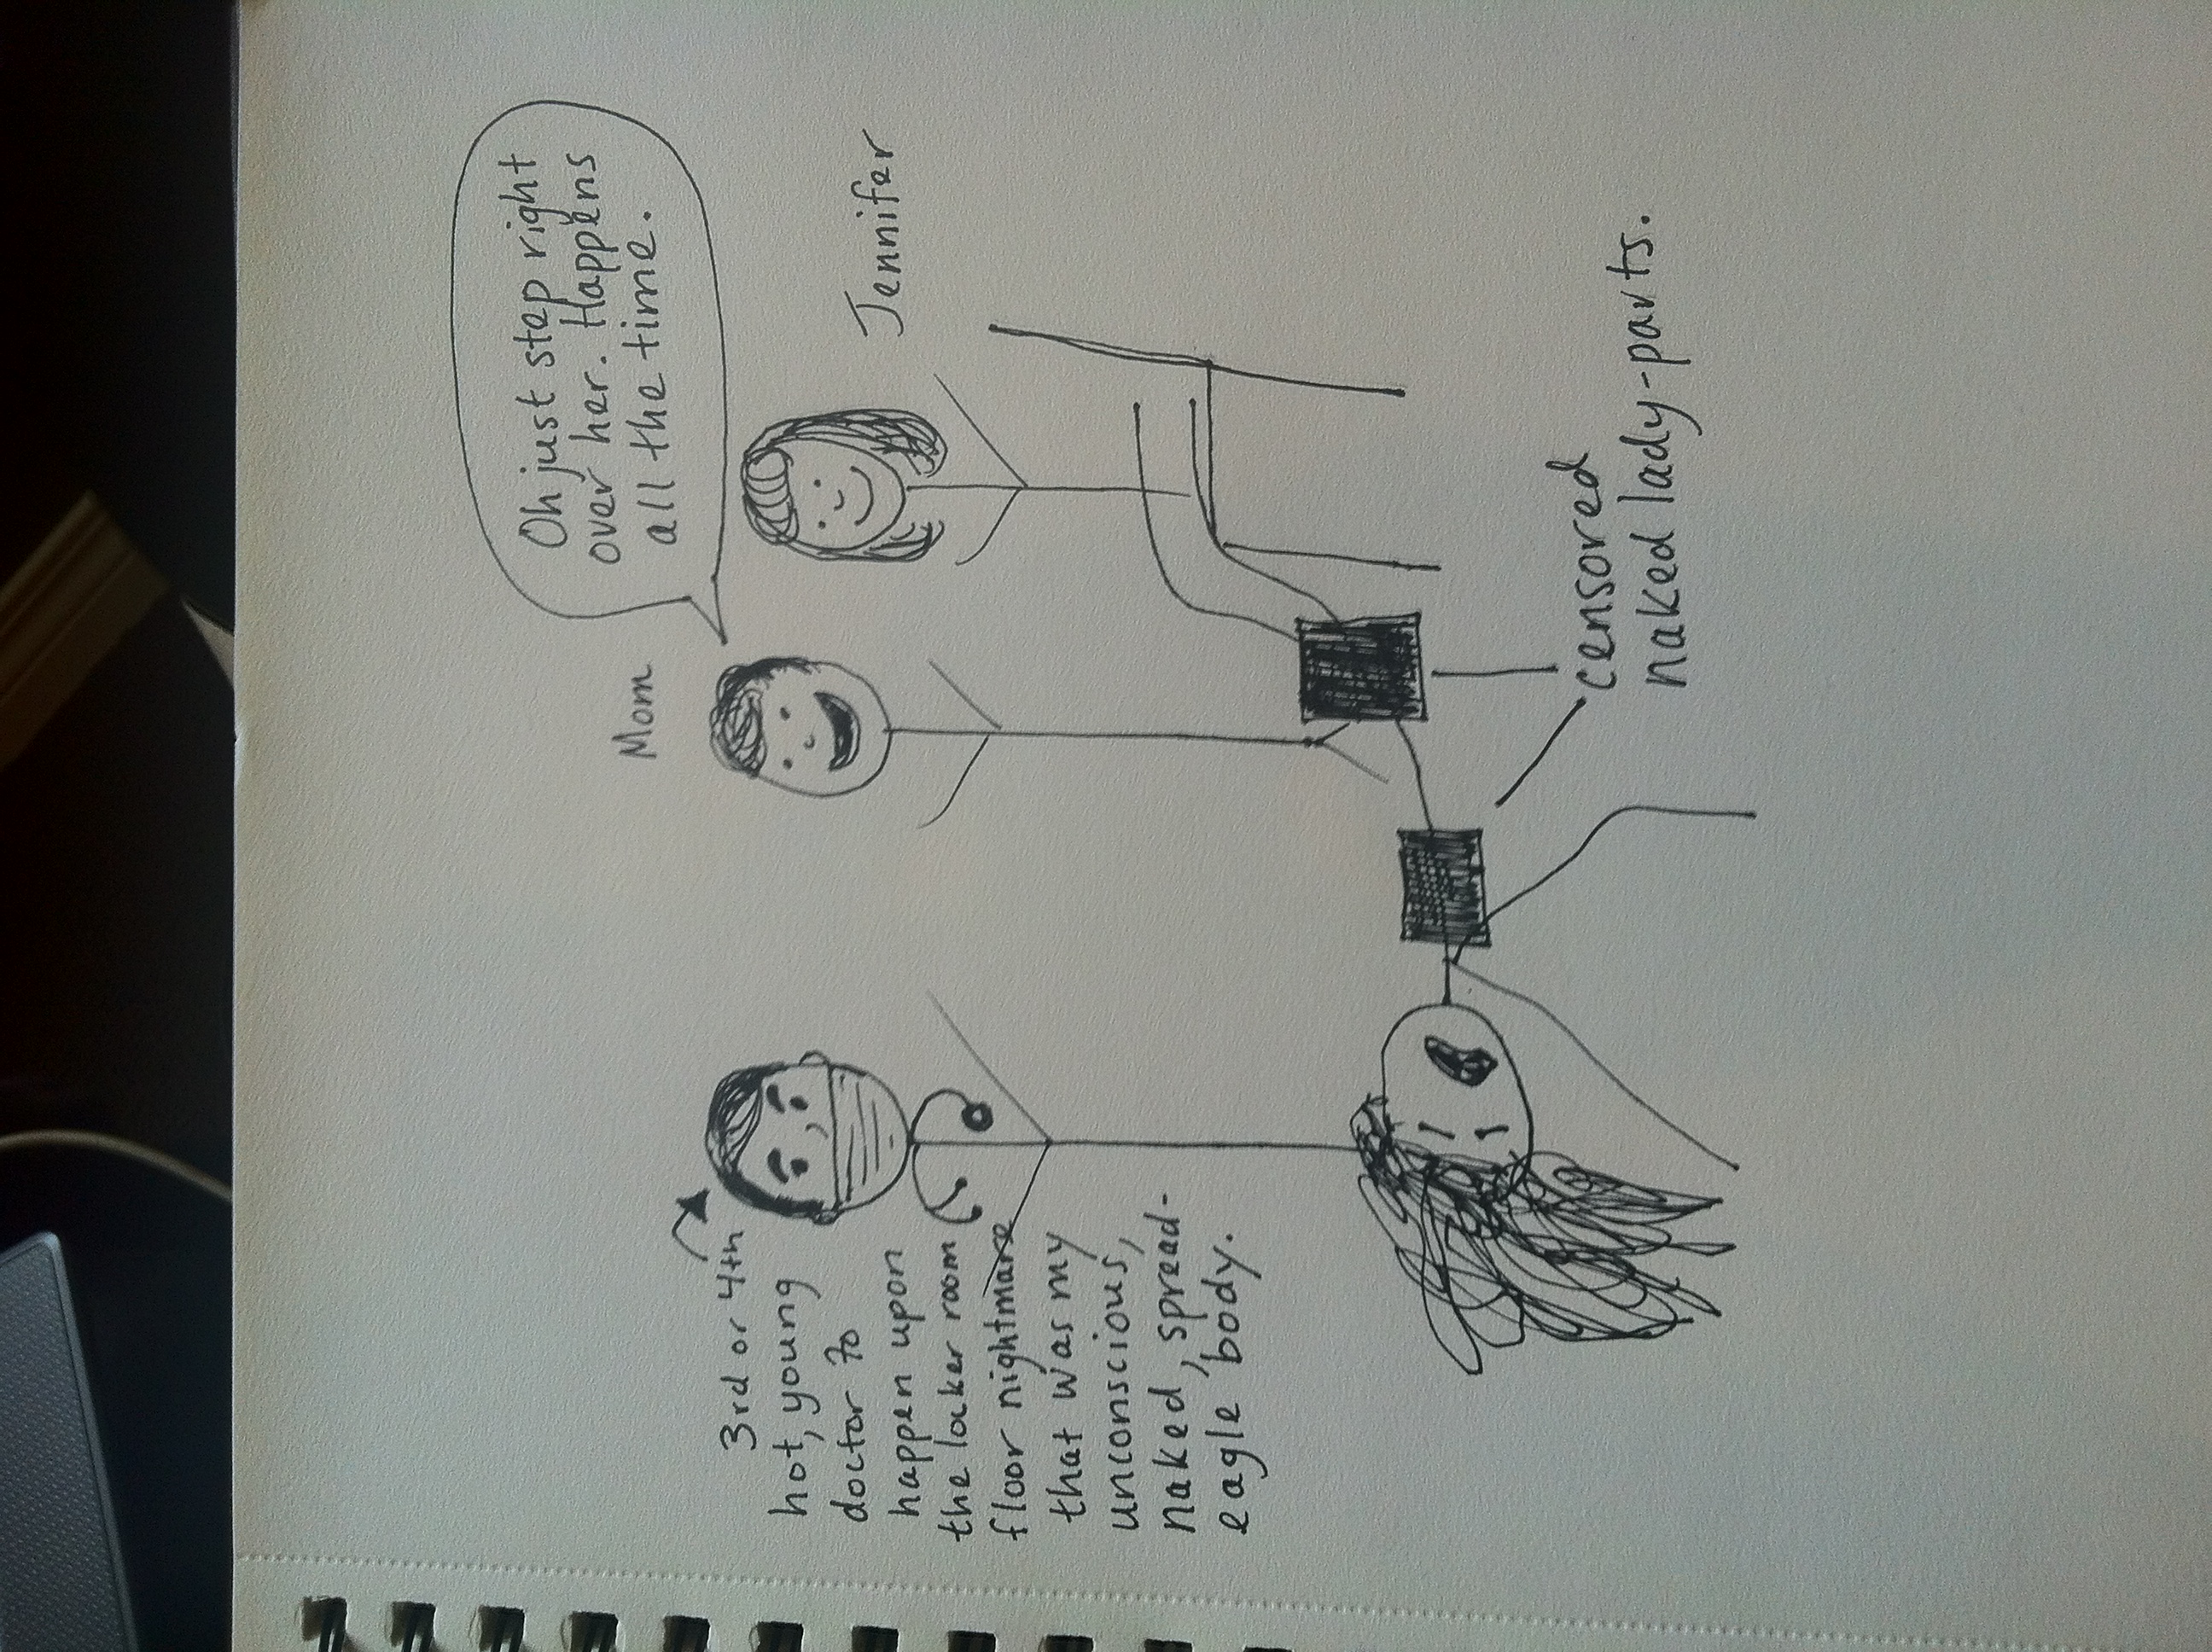 Oh just step right
over her. Happens
all the time.
Mom
Jennifer
3rd or 4th
hot, young
doctor to
happen upon
the locker room
floor nightmare
that was my
unconscious,
naked, spread-
eagle body.
censored
naked lady-parts.